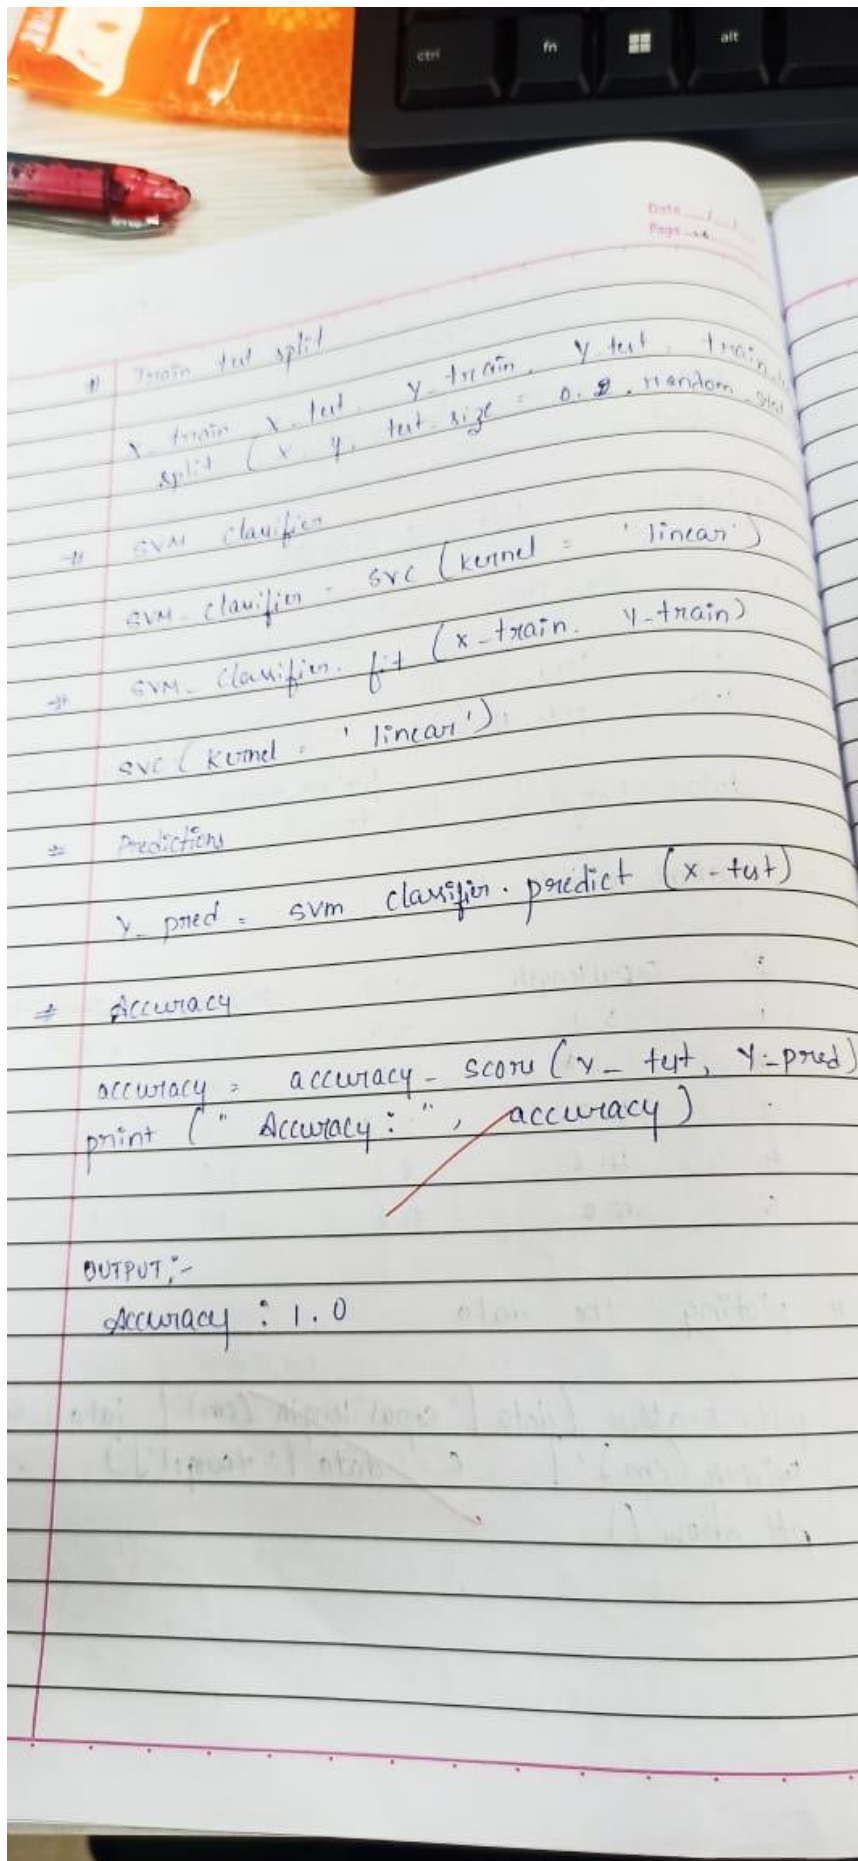 ctrl fn alt
Date
Page
# Train test split
X_train X_test Y_train, Y_test = train
split (x y, test_size = 0.2, random_stat
# SVM classifier
SVM_classifier = SVC (kernel = 'linear')
# SVM_classifier. fit (x_train. y_train)
SVC (kernel = 'linear')
# Predictions
Y_pred = svm classifier. predict (x_test)
# Accuracy
accuracy = accuracy_score (y_test, y_pred)
print (" Accuracy : ", accuracy)
OUTPUT:-
Accuracy : 1.0